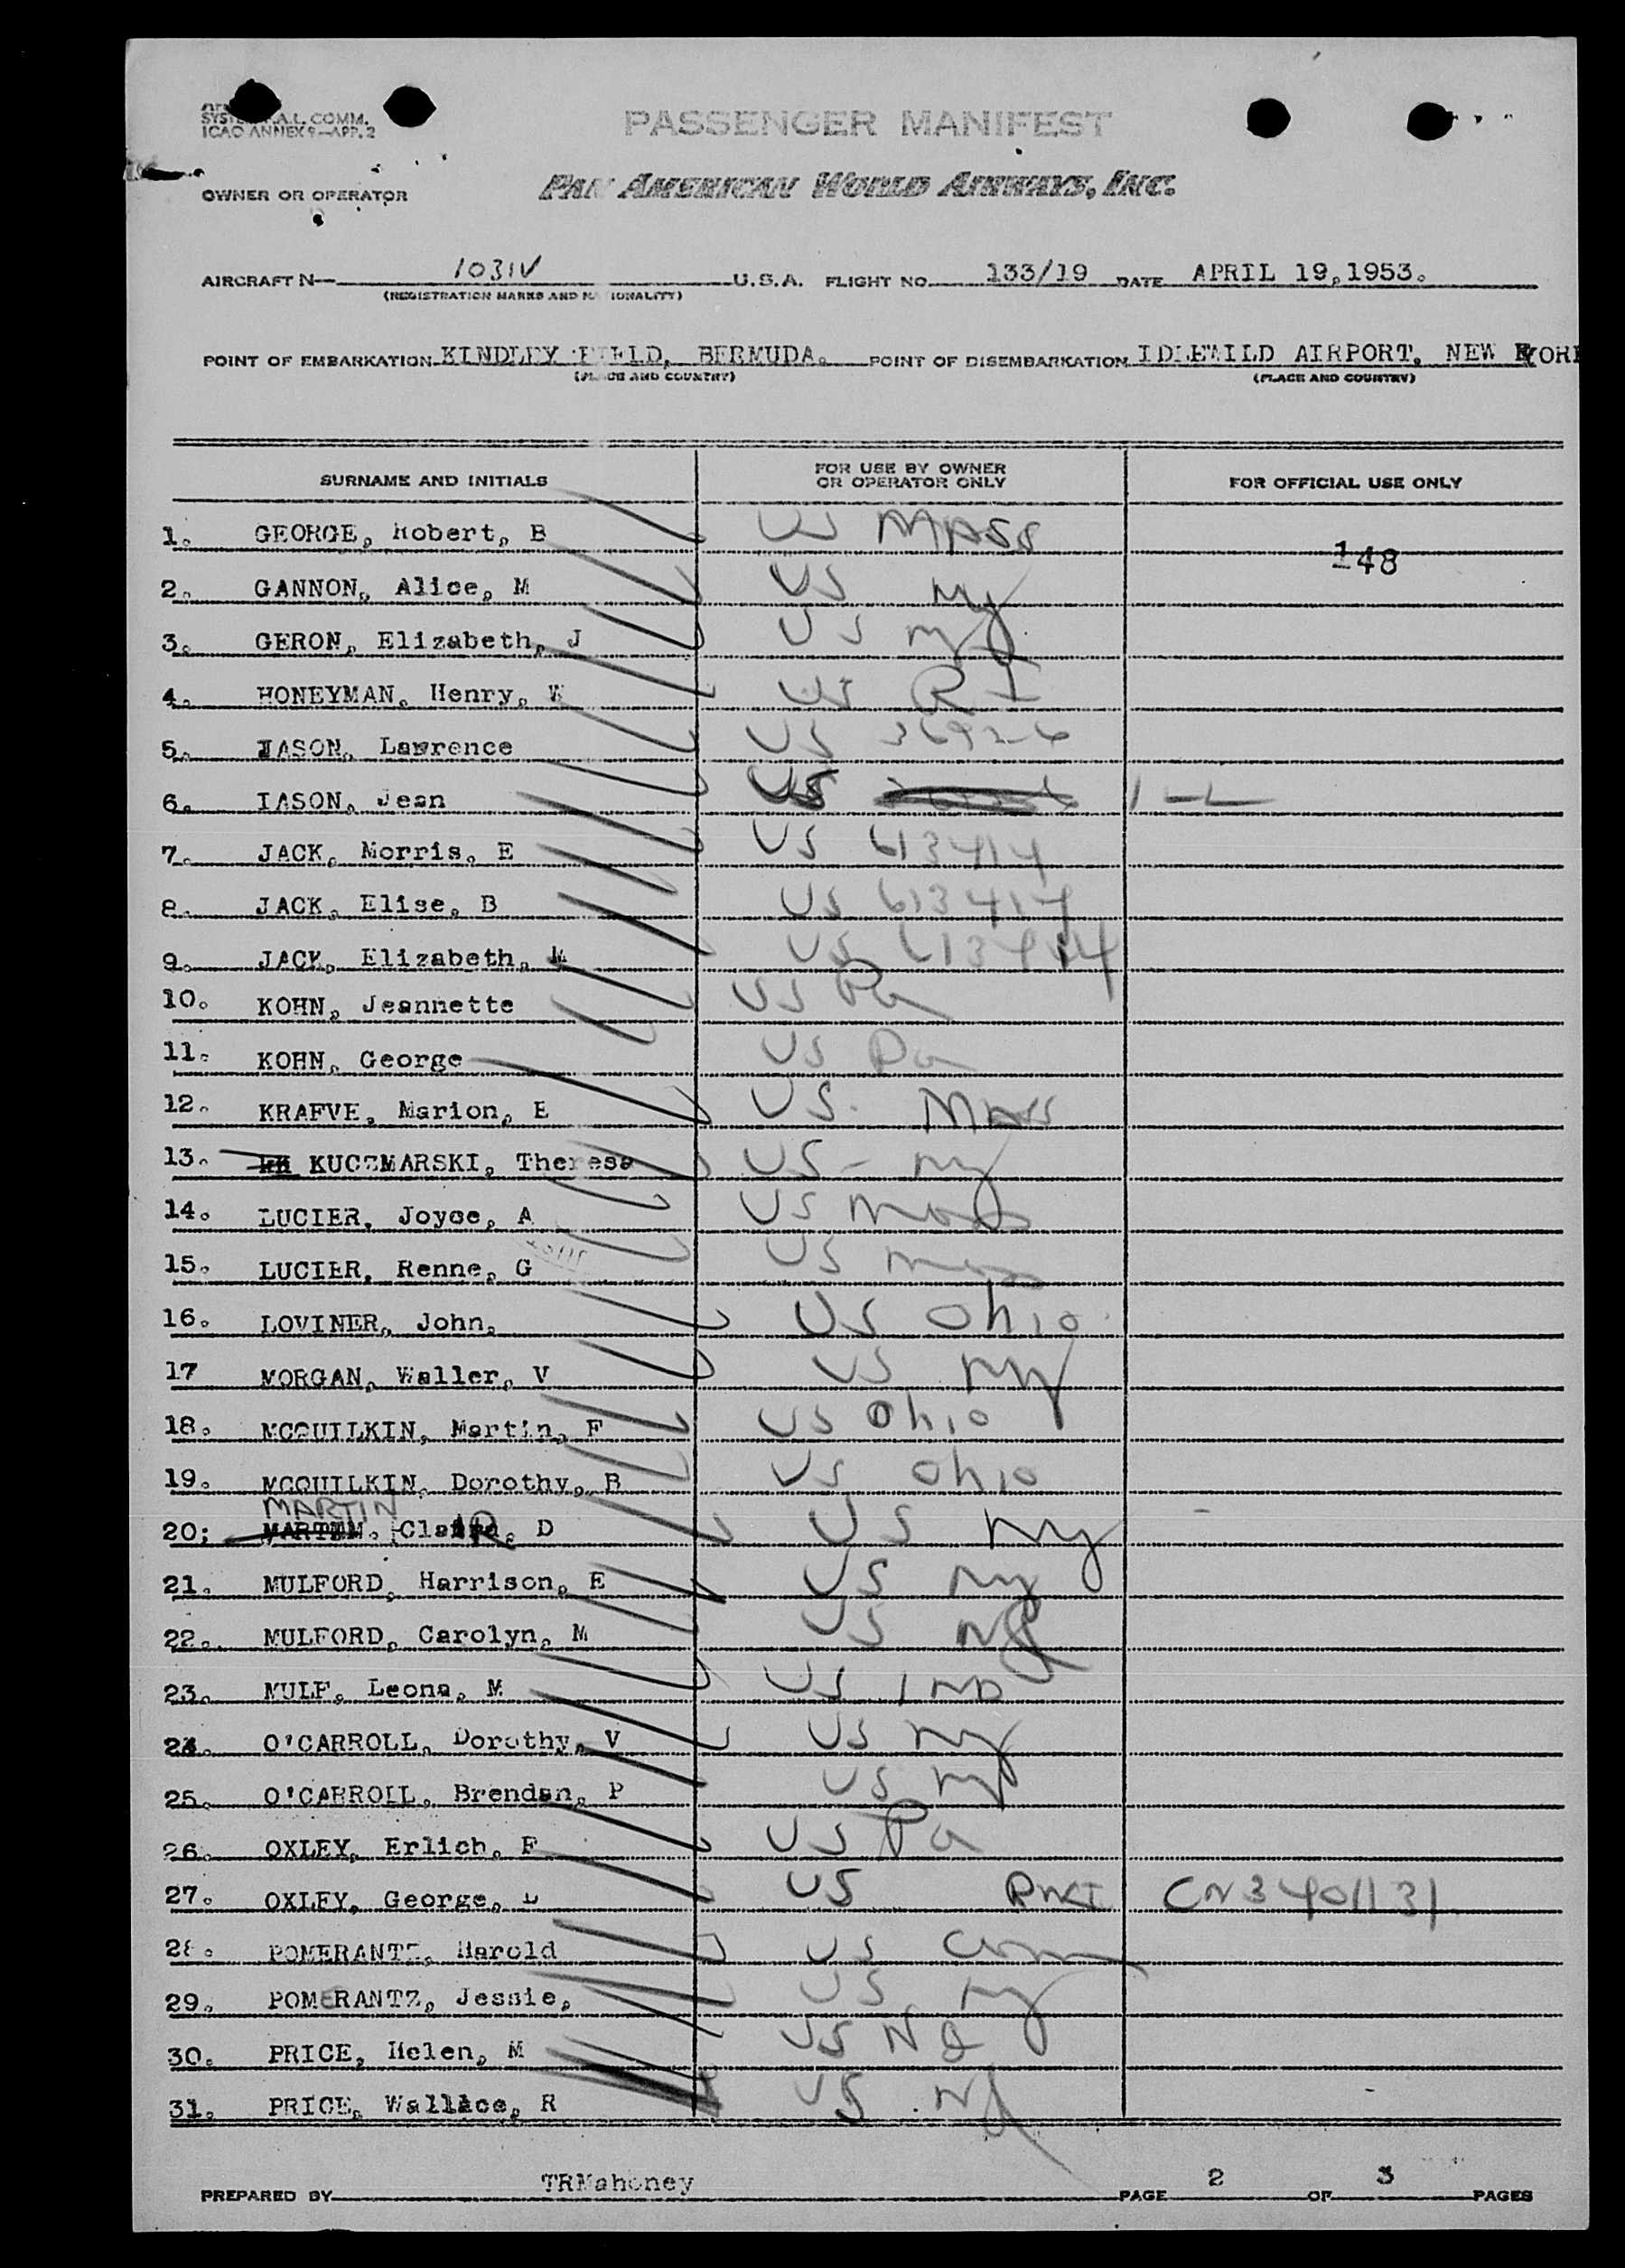 SYST A.L. COMM.
ICAO ANNEX 9—APP. 2
PASSENGER MANIFEST
OWNER OR OPERATOR PAN AMERICAN WORLD AIRWAYS, INC.
AIRCRAFT N— 1031V U.S.A. FLIGHT NO. 133/19 DATE APRIL 19,1953.
(REGISTRATION MARKS AND NATIONALITY)
POINT OF EMBARKATION KINDLEY FIELD, BERMUDA. POINT OF DISEMBARKATION IDLEWILD AIRPORT, NEW YORK
(PLACE AND COUNTRY) (PLACE AND COUNTRY)
SURNAME AND INITIALS FOR USE BY OWNER OR OPERATOR ONLY FOR OFFICIAL USE ONLY
1. GEORGE, Robert, B US MASS
148
2. GANNON, Alice, M US ny
3. GERON, Elizabeth, J US ny
4. HONEYMAN, Henry, W US RI
5. IASON, Lawrence US
6. IASON, Jean US
7. JACK, Morris, E US 613414
8. JACK, Elise, B US 613414
9. JACK, Elizabeth, M US 613414
10. KOHN, Jeannette US Pa
11. KOHN, George US Pa
12. KRAFVE, Marion, E US. Mass
13. KUCZMARSKI, Theresa US - ny
14. LUCIER, Joyce, A US mass
15. LUCIER, Renne, G US mass
16. LOVINER, John, US Ohio
17 MORGAN, Waller, V US ny
18. MCQUILKIN, Martin, F US Ohio
19. MCQUILKIN, Dorothy, B US Ohio
MARTIN
20; Clair, D US ny
21. MULFORD, Harrison, E US ny
22. MULFORD, Carolyn, M US NJ
23. MULF, Leona, M US IND
24. O'CARROLL, Dorothy, V US ny
25. O'CARROLL, Brendan, P US ny
26. OXLEY, Erlich, F US Pa
27. OXLEY, George, US CN3401131
28. POMERANTZ, Harold US Conn
29. POMERANTZ, Jessie, US ny
30. PRICE, Helen, M US NJ
31. PRICE, Wallace, R US NJ
PREPARED BY TRMahoney PAGE 2 OF 3 PAGES